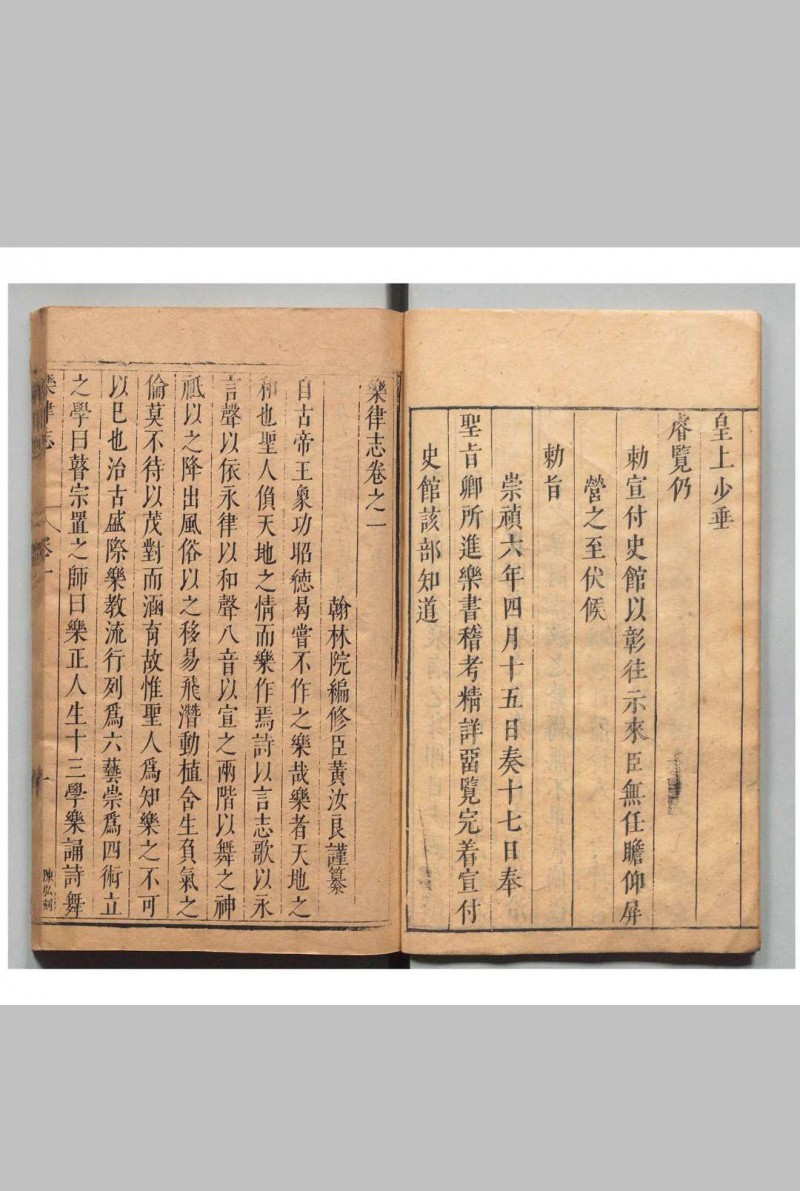 皇上少垂
睿覽仍
勅宣付史館以彰往示來臣無任瞻仰屏
營之至伏候
勅旨
崇禎六年四月十五日奏十七日奉
聖旨卿所進樂書稽考精詳畱覽完着宣付
史館該部知道
樂律志卷之一
翰林院編修臣黃汝良謹纂
自古帝王象功昭德曷嘗不作之樂哉樂者天地之
和也聖人偩天地之情而樂作焉詩以言志歌以永
言聲以依永律以和聲八音以宣之兩階以舞之神
祇以之降出風俗以之移易飛潛動植含生負氣之
倫莫不待以茂對而涵育故惟聖人爲知樂之不可
以已也治古盛際樂教流行列爲六藝崇爲四術立
之學曰瞽宗置之師曰樂正人生十三學樂誦詩舞
樂律志 卷一 一 陳弘刻